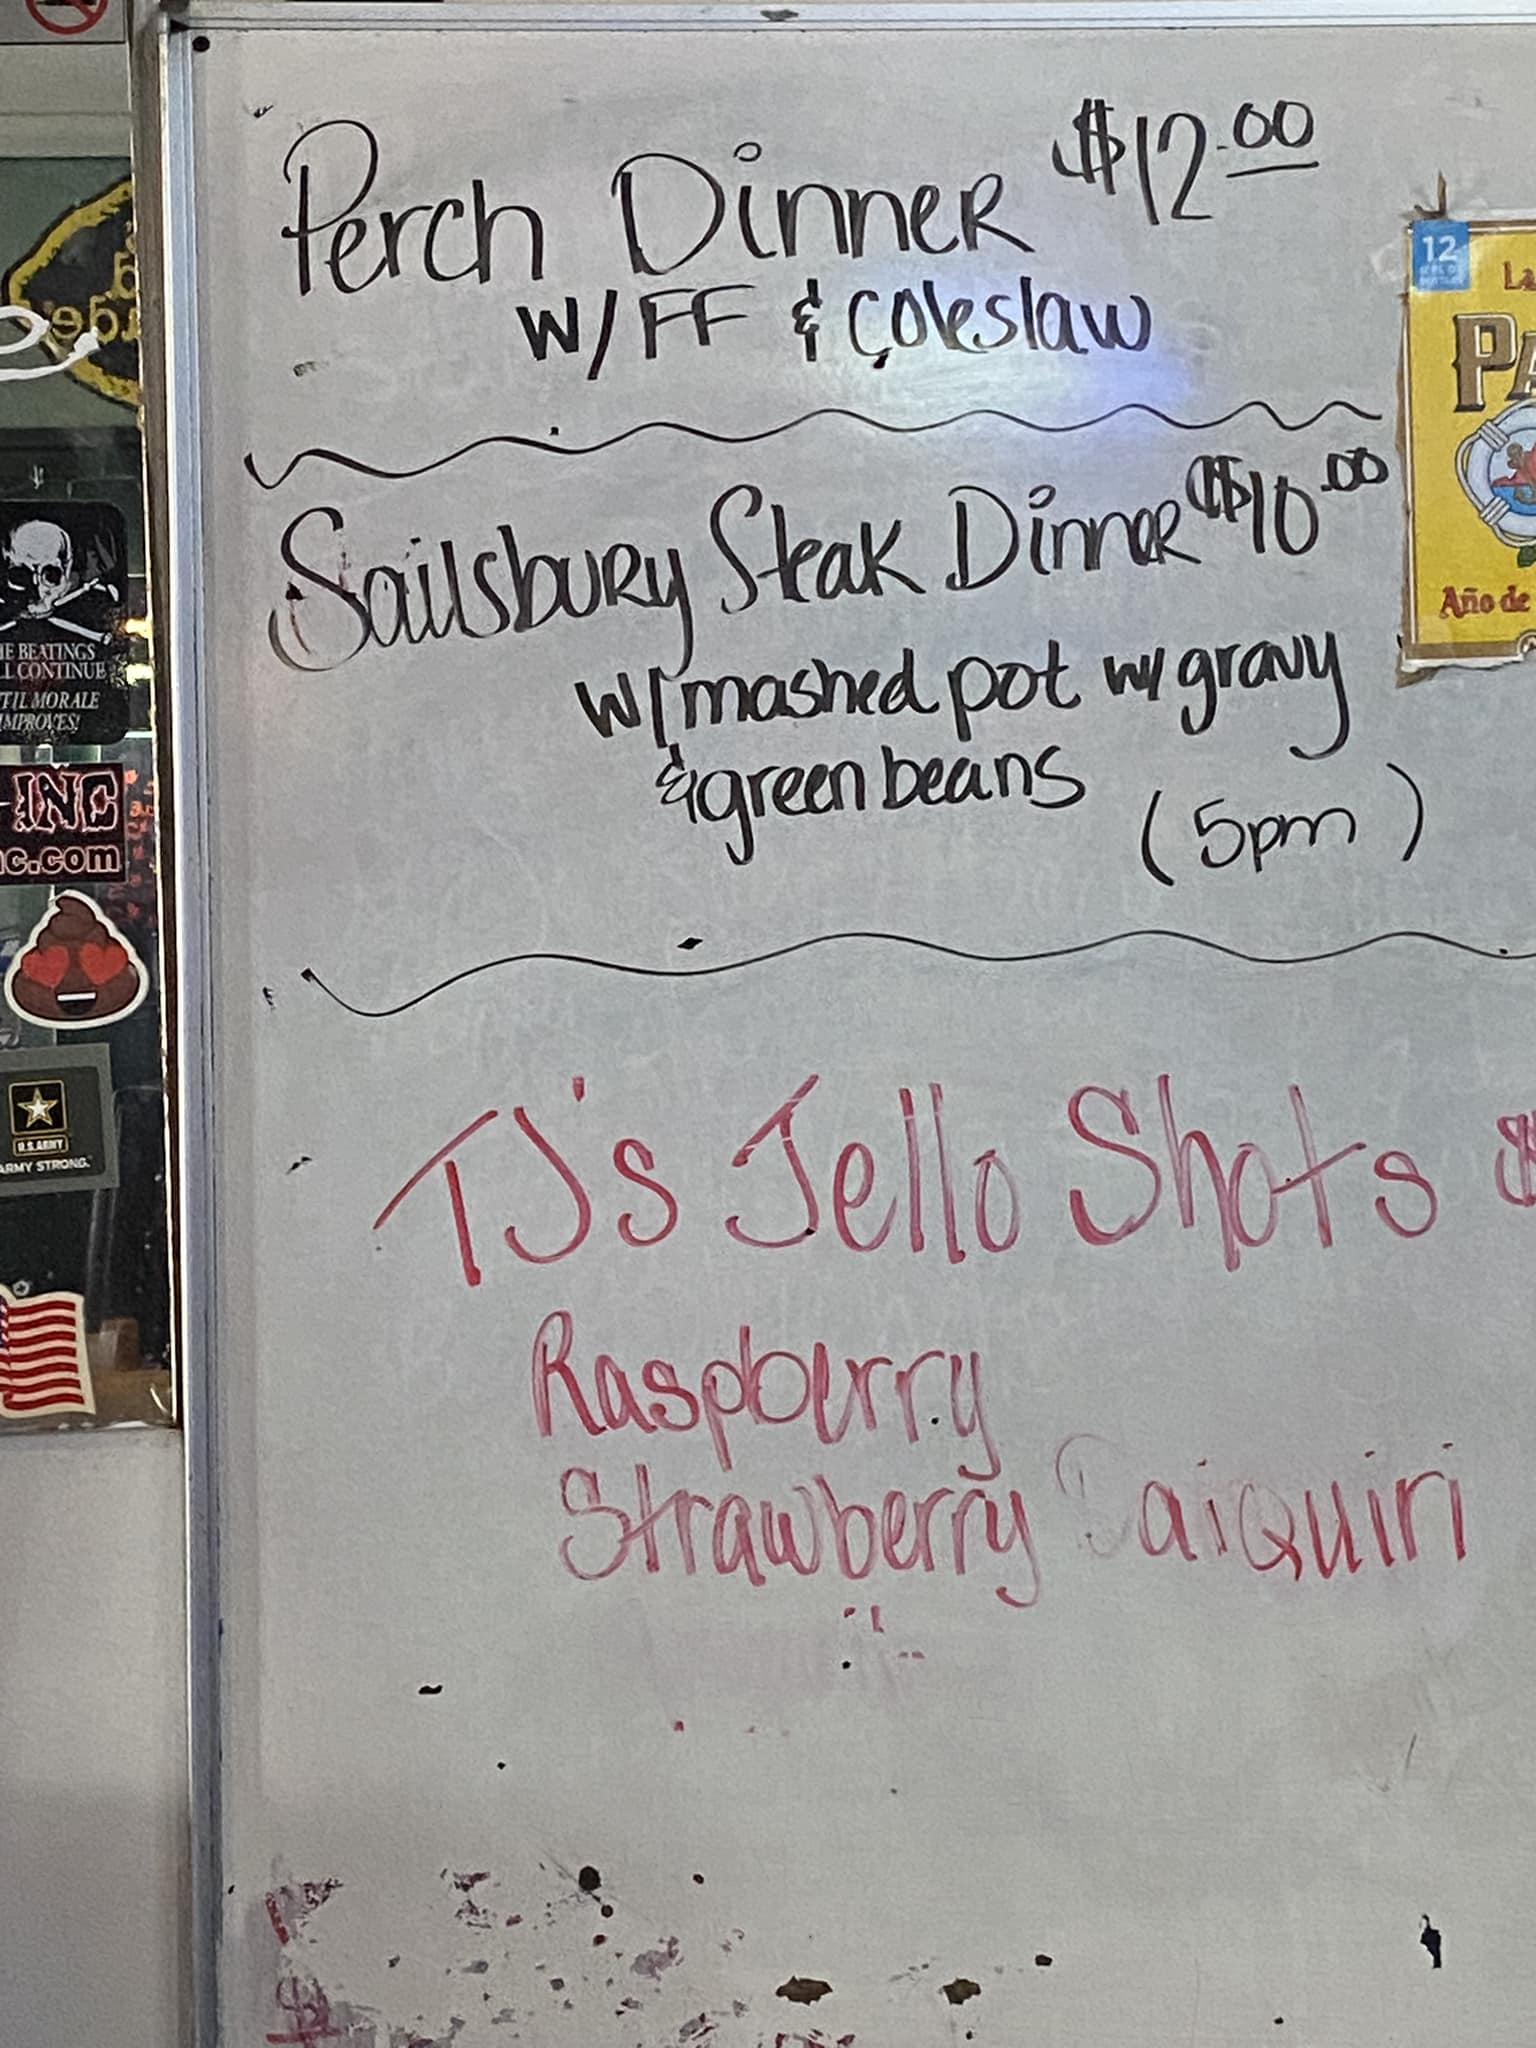 Perch Dinner $12.00
W/FF & Coleslaw
Sailsbury Steak Dinner $10.00
w/mashed pot w/ gravy
& green beans
(5pm)
TJ's Jello Shots $
Raspberry
Strawberry Daiquiri
12
PA
Año de
HE BEATINGS
LL CONTINUE
TIL MORALE
IMPROVES!
INC
nc.com
U.S. ARMY
ARMY STRONG.